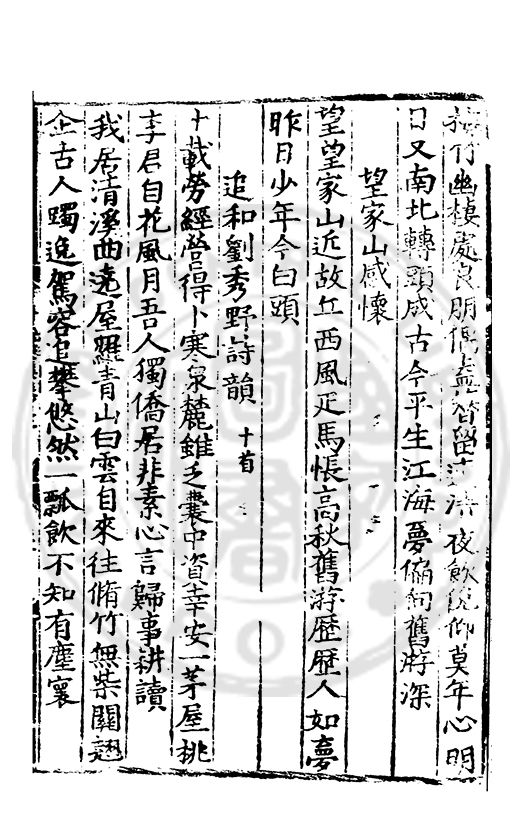 梅竹幽棲處良朋偶盍簪留連清夜飲俛仰莫年心明
日又南北轉頭成古今平生江海夢偏向舊游深
望家山感懷
望望家山近故丘西風疋馬悵高秋舊游歷歷人如夢
昨日少年今白頭
追和劉秀野詩韻 十首
十載勞經營得卜寒泉麓錐乏囊中資幸安一茅屋桃
李君自花風月吾人獨僑居非素心言歸事耕讀
我居清溪曲遶屋羅青山白雲自來往脩竹無柴關翹
企古人躅逸駕容追攀悠然一瓢飲不知有塵寰